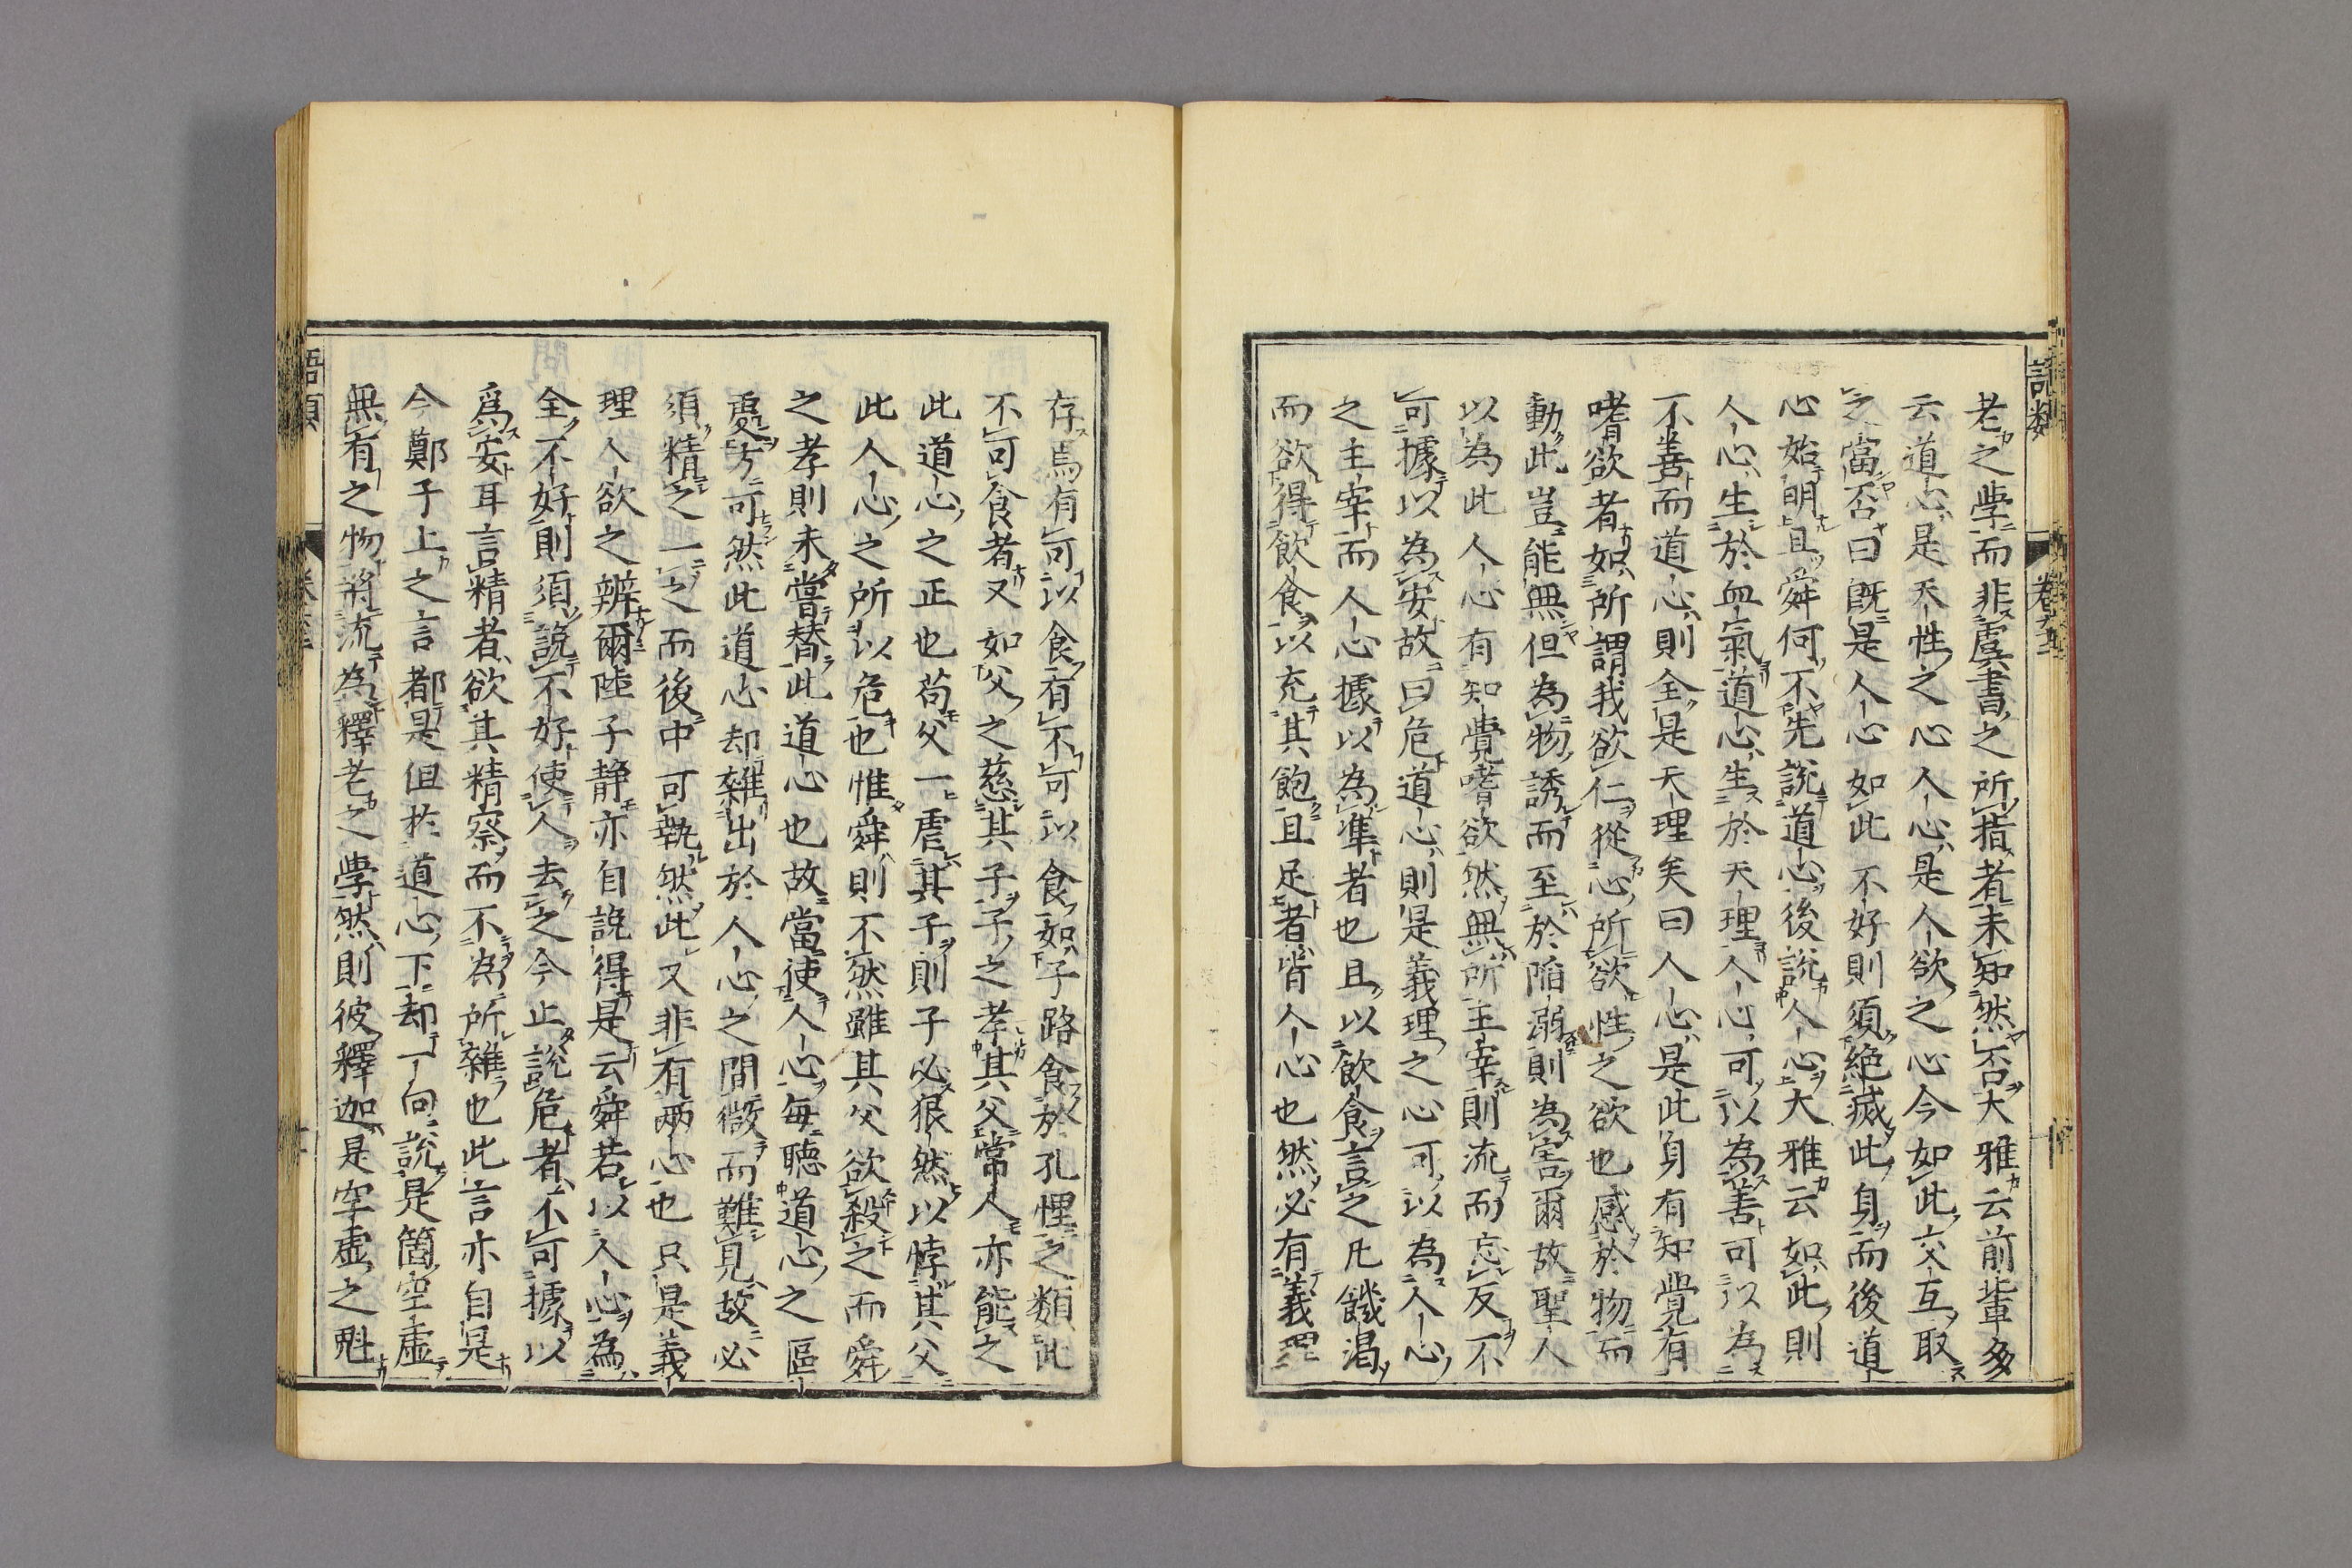 老之学而非虞書之所指者未知然否大雅云前輩多
云道心是天性之心人心是人欲之心今如此交互取
之當否曰既是人心如此不好則須絶滅此身而後道
心始明且舜何不先説道心後説人心大雅云如此則
人心生於血氣道心生於天理人心可以為善可以為
不善而道心則全是天理矣曰人心是此身有知覺有
嗜欲者如所謂我欲仁從心所欲性之欲也感於物而
動此豈能無但為物誘而至於陥溺則為害爾故聖人
以為此人心有知覺嗜欲然無所主宰則流而忘反不
可據以為安故曰危道心則是義理之心可以為人心
之主宰而人心據以為準者也且以飲食言之凡饑渇
而欲得飲食以充其飽且足者皆人心也然必有義理
存焉有可以食有不可以食如子路食於孔悝之類此
不可食者又如父之慈其子子之孝其父常人亦能之
此道心之正也苟父一虐其子則子必狠然以悖其父
此人心之所以危也惟舜則不然雖其父欲殺之而舜
之孝則未嘗替此道心也故當使人心毎聴道心之區
處方可然此道心却雜出於人心之間微而難見故必
須精之一之而後中可執然此又非有兩心也只是義
理人欲之辨爾陸子静亦自説得是云舜若以人心為
全不好則須説不好使人去之今止説危者不可據以
為安耳言精者欲其精察而不為所雜也此言亦自是
今鄭子上之言都是但於道心下却一向説是箇空虚
無有之物將流為釋老之学然則彼釋迦是空虚之魁